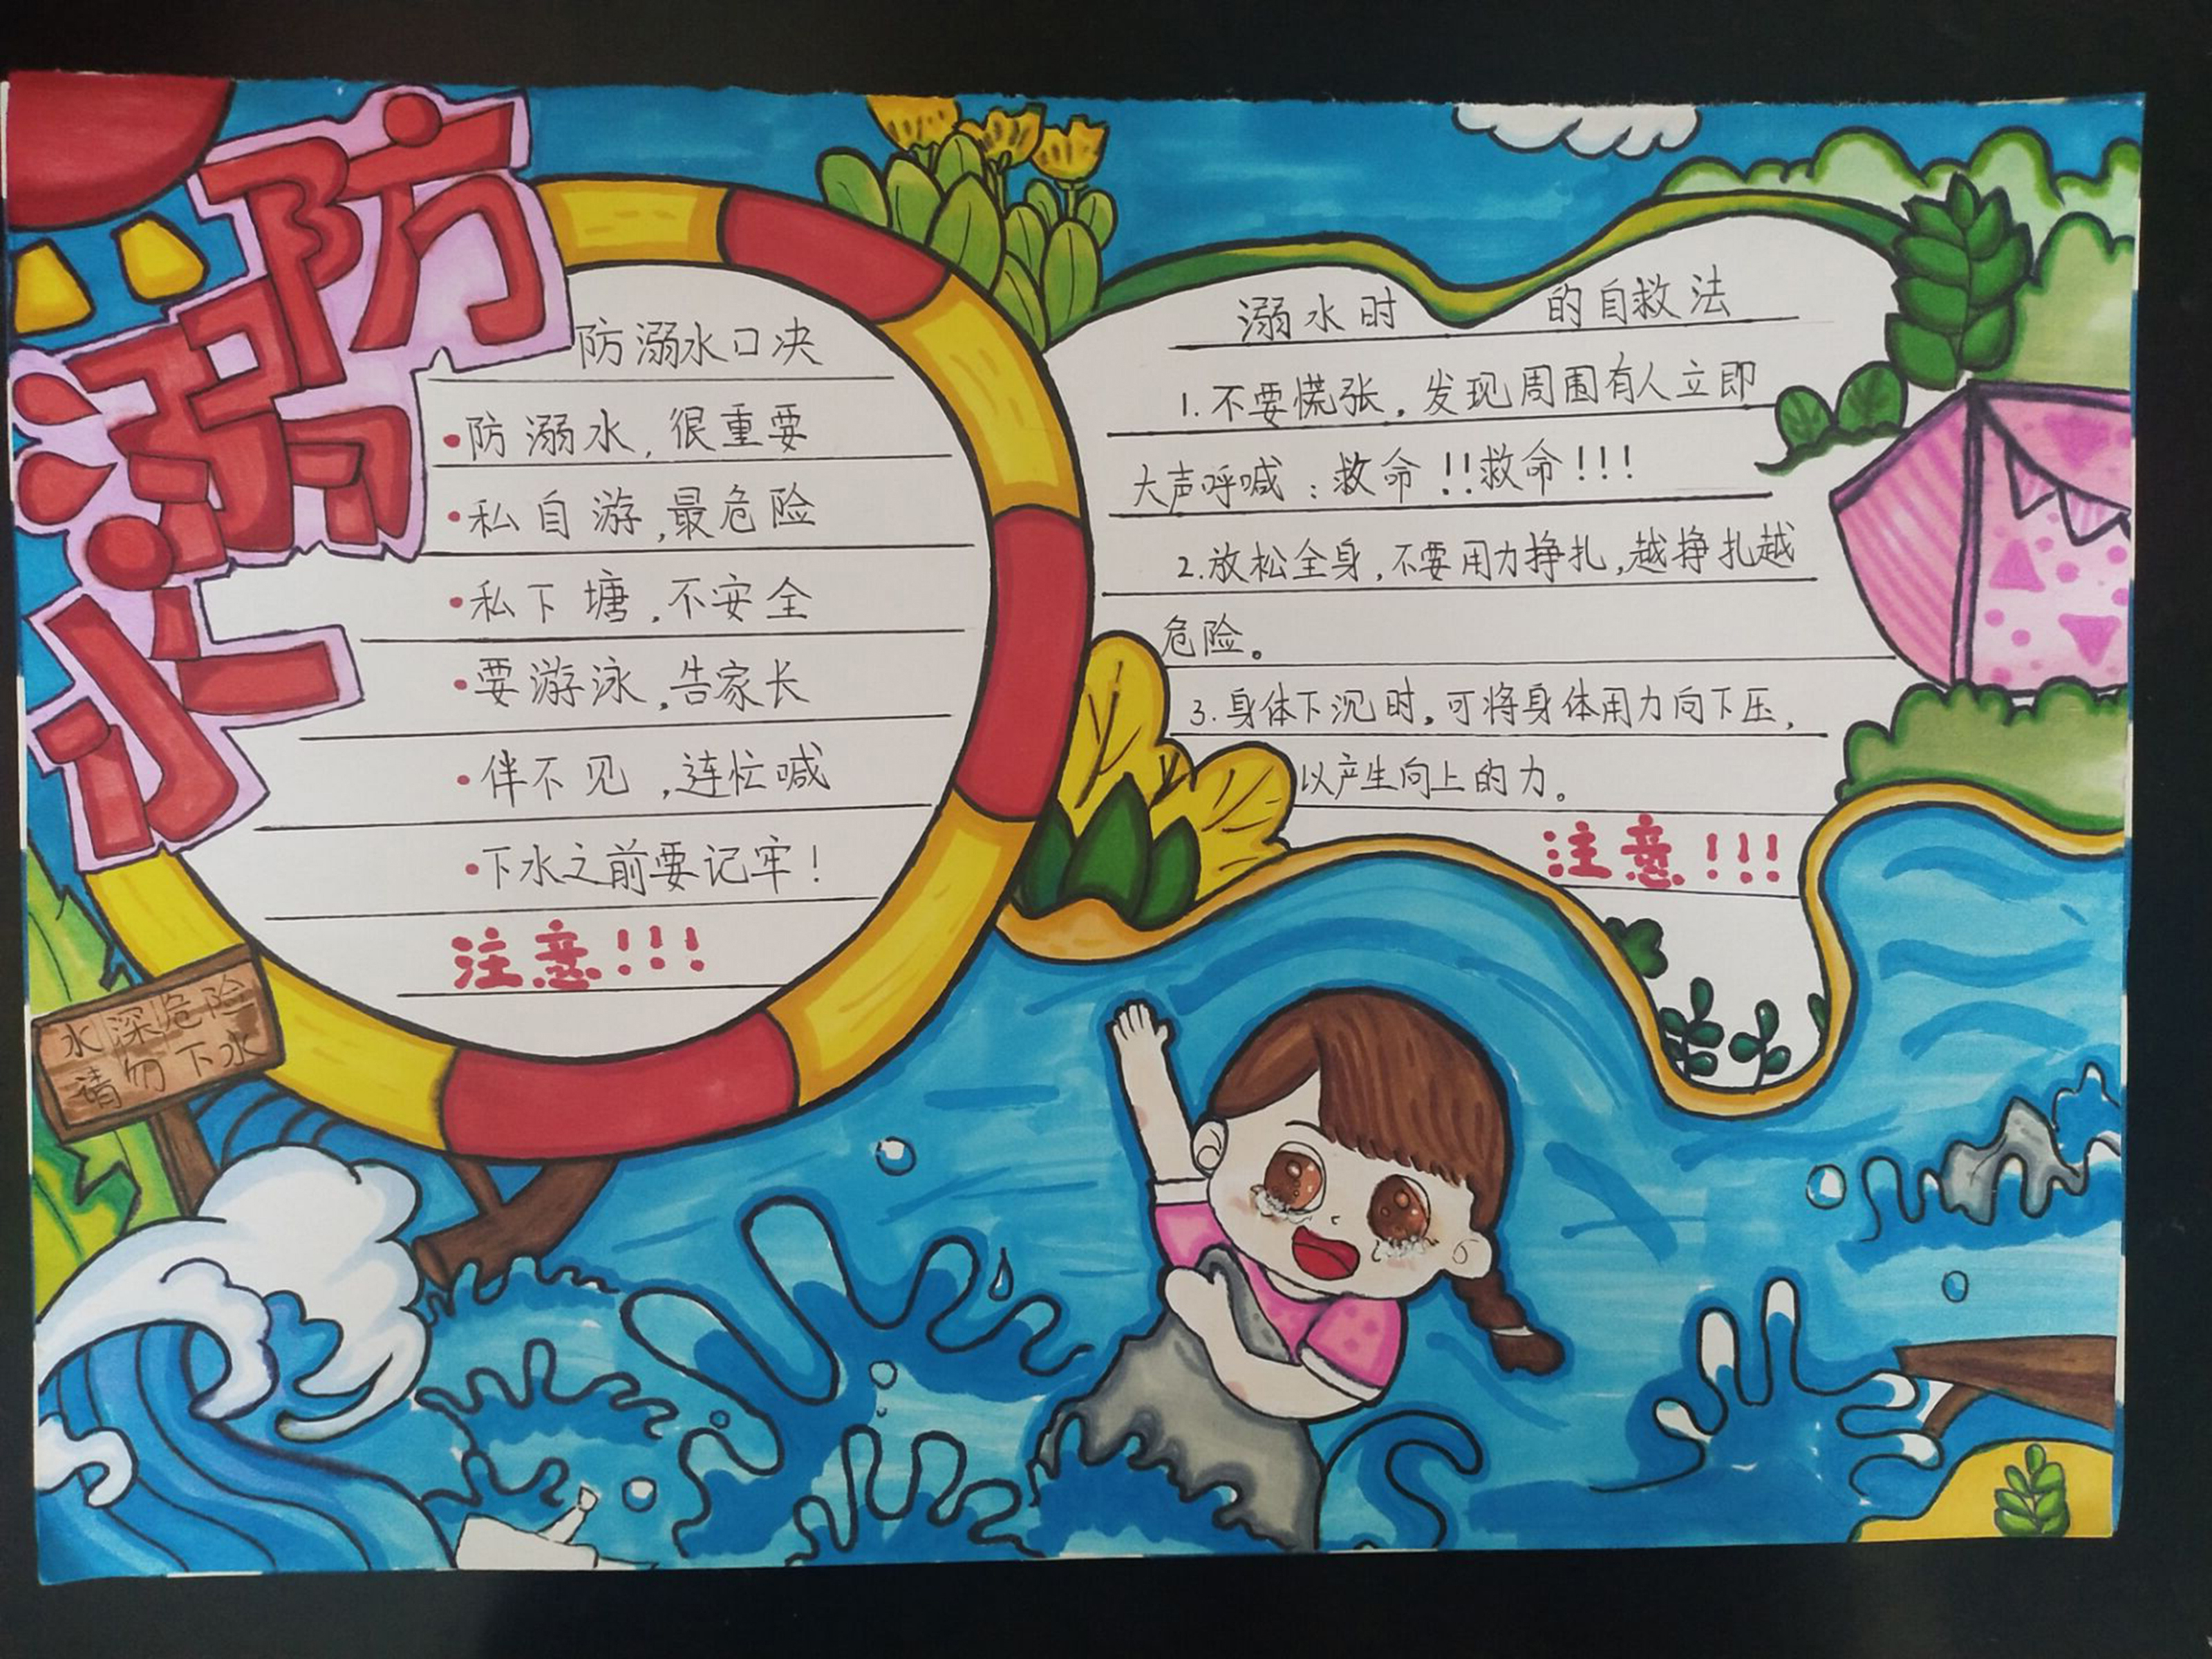 防溺水
防溺水口决
•防溺水,很重要
•私自游,最危险
•私下塘,不安全
•要游泳,告家长
•伴不见,连忙喊
•下水之前要记牢!
注意!!!
水深危险
请勿下水
溺水时 的自救法
1.不要慌张,发现周围有人立即
大声呼喊:救命!!救命!!!
2.放松全身,不要用力挣扎,越挣扎越
危险。
3.身体下沉时,可将身体用力向下压,
以产生向上的力。
注意!!!